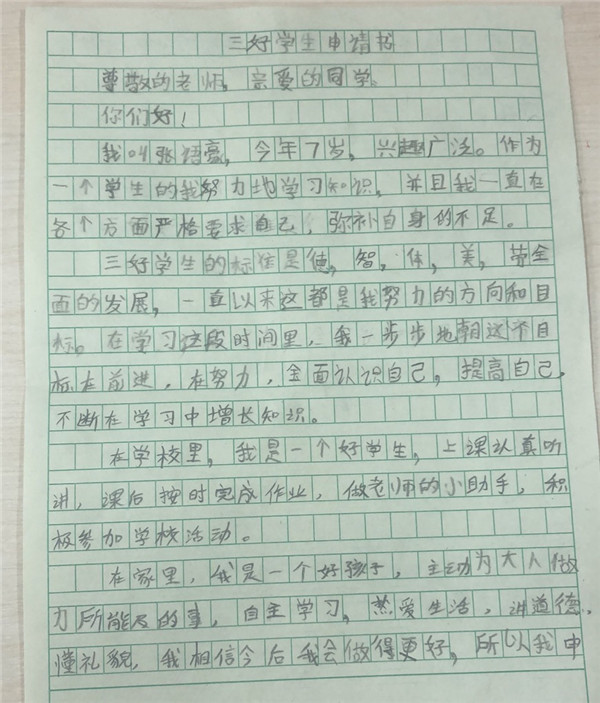 三好学生申请书
尊敬的老师,亲爱的同学。
你们好!
我叫张语豪,今年7岁,兴趣广泛。作为
一个学生的我努力地学习知识,并且我一直在
各个方面严格要求自己,弥补自身的不足。
三好学生的标准是德,智,体,美,劳全
面的发展,一直以来这都是我努力的方向和目
标。在学习这段时间里,我一步步地朝这个目
标在前进,在努力,全面认识自己,提高自己,
不断在学习中增长知识。
在学校里,我是一个好学生,上课认真听
讲,课后按时完成作业,做老师的小助手,积
极参加学校活动。
在家里,我是一个好孩子,主动为大人做
力所能及的事,自主学习,热爱生活,讲道德,
懂礼貌,我相信今后我会做得更好,所以我申